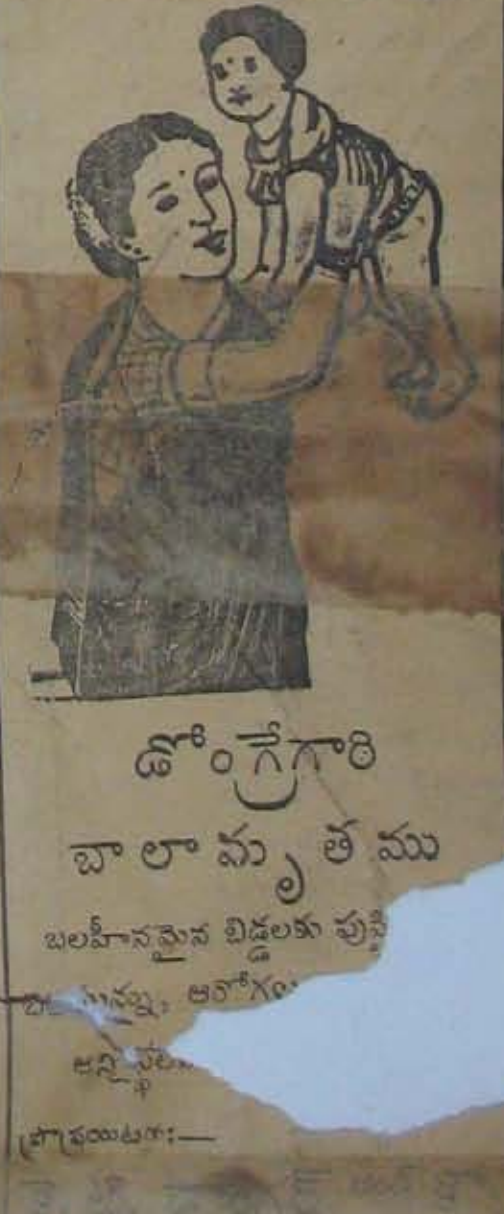 డోంగ్రేగారి
బాలామృతము
బలహీనమైన బిడ్డలకు పుష్టి
ఆరోగ్య
అన్ని స్థల
ప్రొప్రయిటరు:—